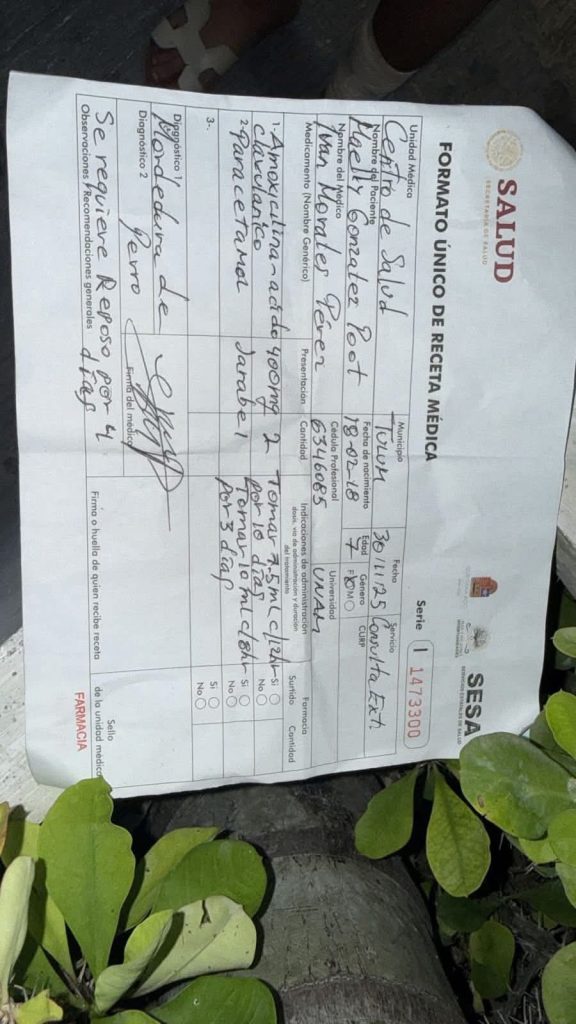 SALUD
SECRETARÍA DE SALUD
SESA
SERVICIOS ESTATALES DE SALUD
FORMATO ÚNICO DE RECETA MÉDICA
Serie I 1473300
Unidad Médica Municipio Fecha Servicio
Centro de Salud Tulum 30/11/25 Consulta Ext.
Nombre del Paciente Fecha de nacimiento Edad Género CURP
Maelly Gonzalez Poot 18-02-18 7 F M
Nombre del Médico Cédula Profesional Universidad
Ivan Morales Pérez 6346085 UNAM
Medicamento (Nombre Genérico) Presentación Cantidad Indicaciones de administración Farmacia
dosis, vía de administración y duración del tratamiento Surtido Cantidad
1. Amoxicilina-acido 400mg 2 Tomar 7.5 ml c/12hr Si
clavulanico por 10 días No
2. Paracetamol Jarabe 1 Tomar 10 ml c/8hr Si
por 3 días No
3.- Si
No
Diagnóstico 1
Mordedura de
Diagnóstico 2
perro
Firma del médico
Firma o huella de quien recibe receta
Sello
de la unidad médica
FARMACIA
Observaciones y Recomendaciones generales
Se requiere Reposo por 4
días